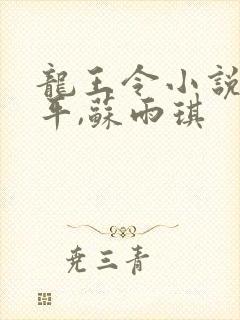 龍王令小説
平,蘇雨琪
尭三青